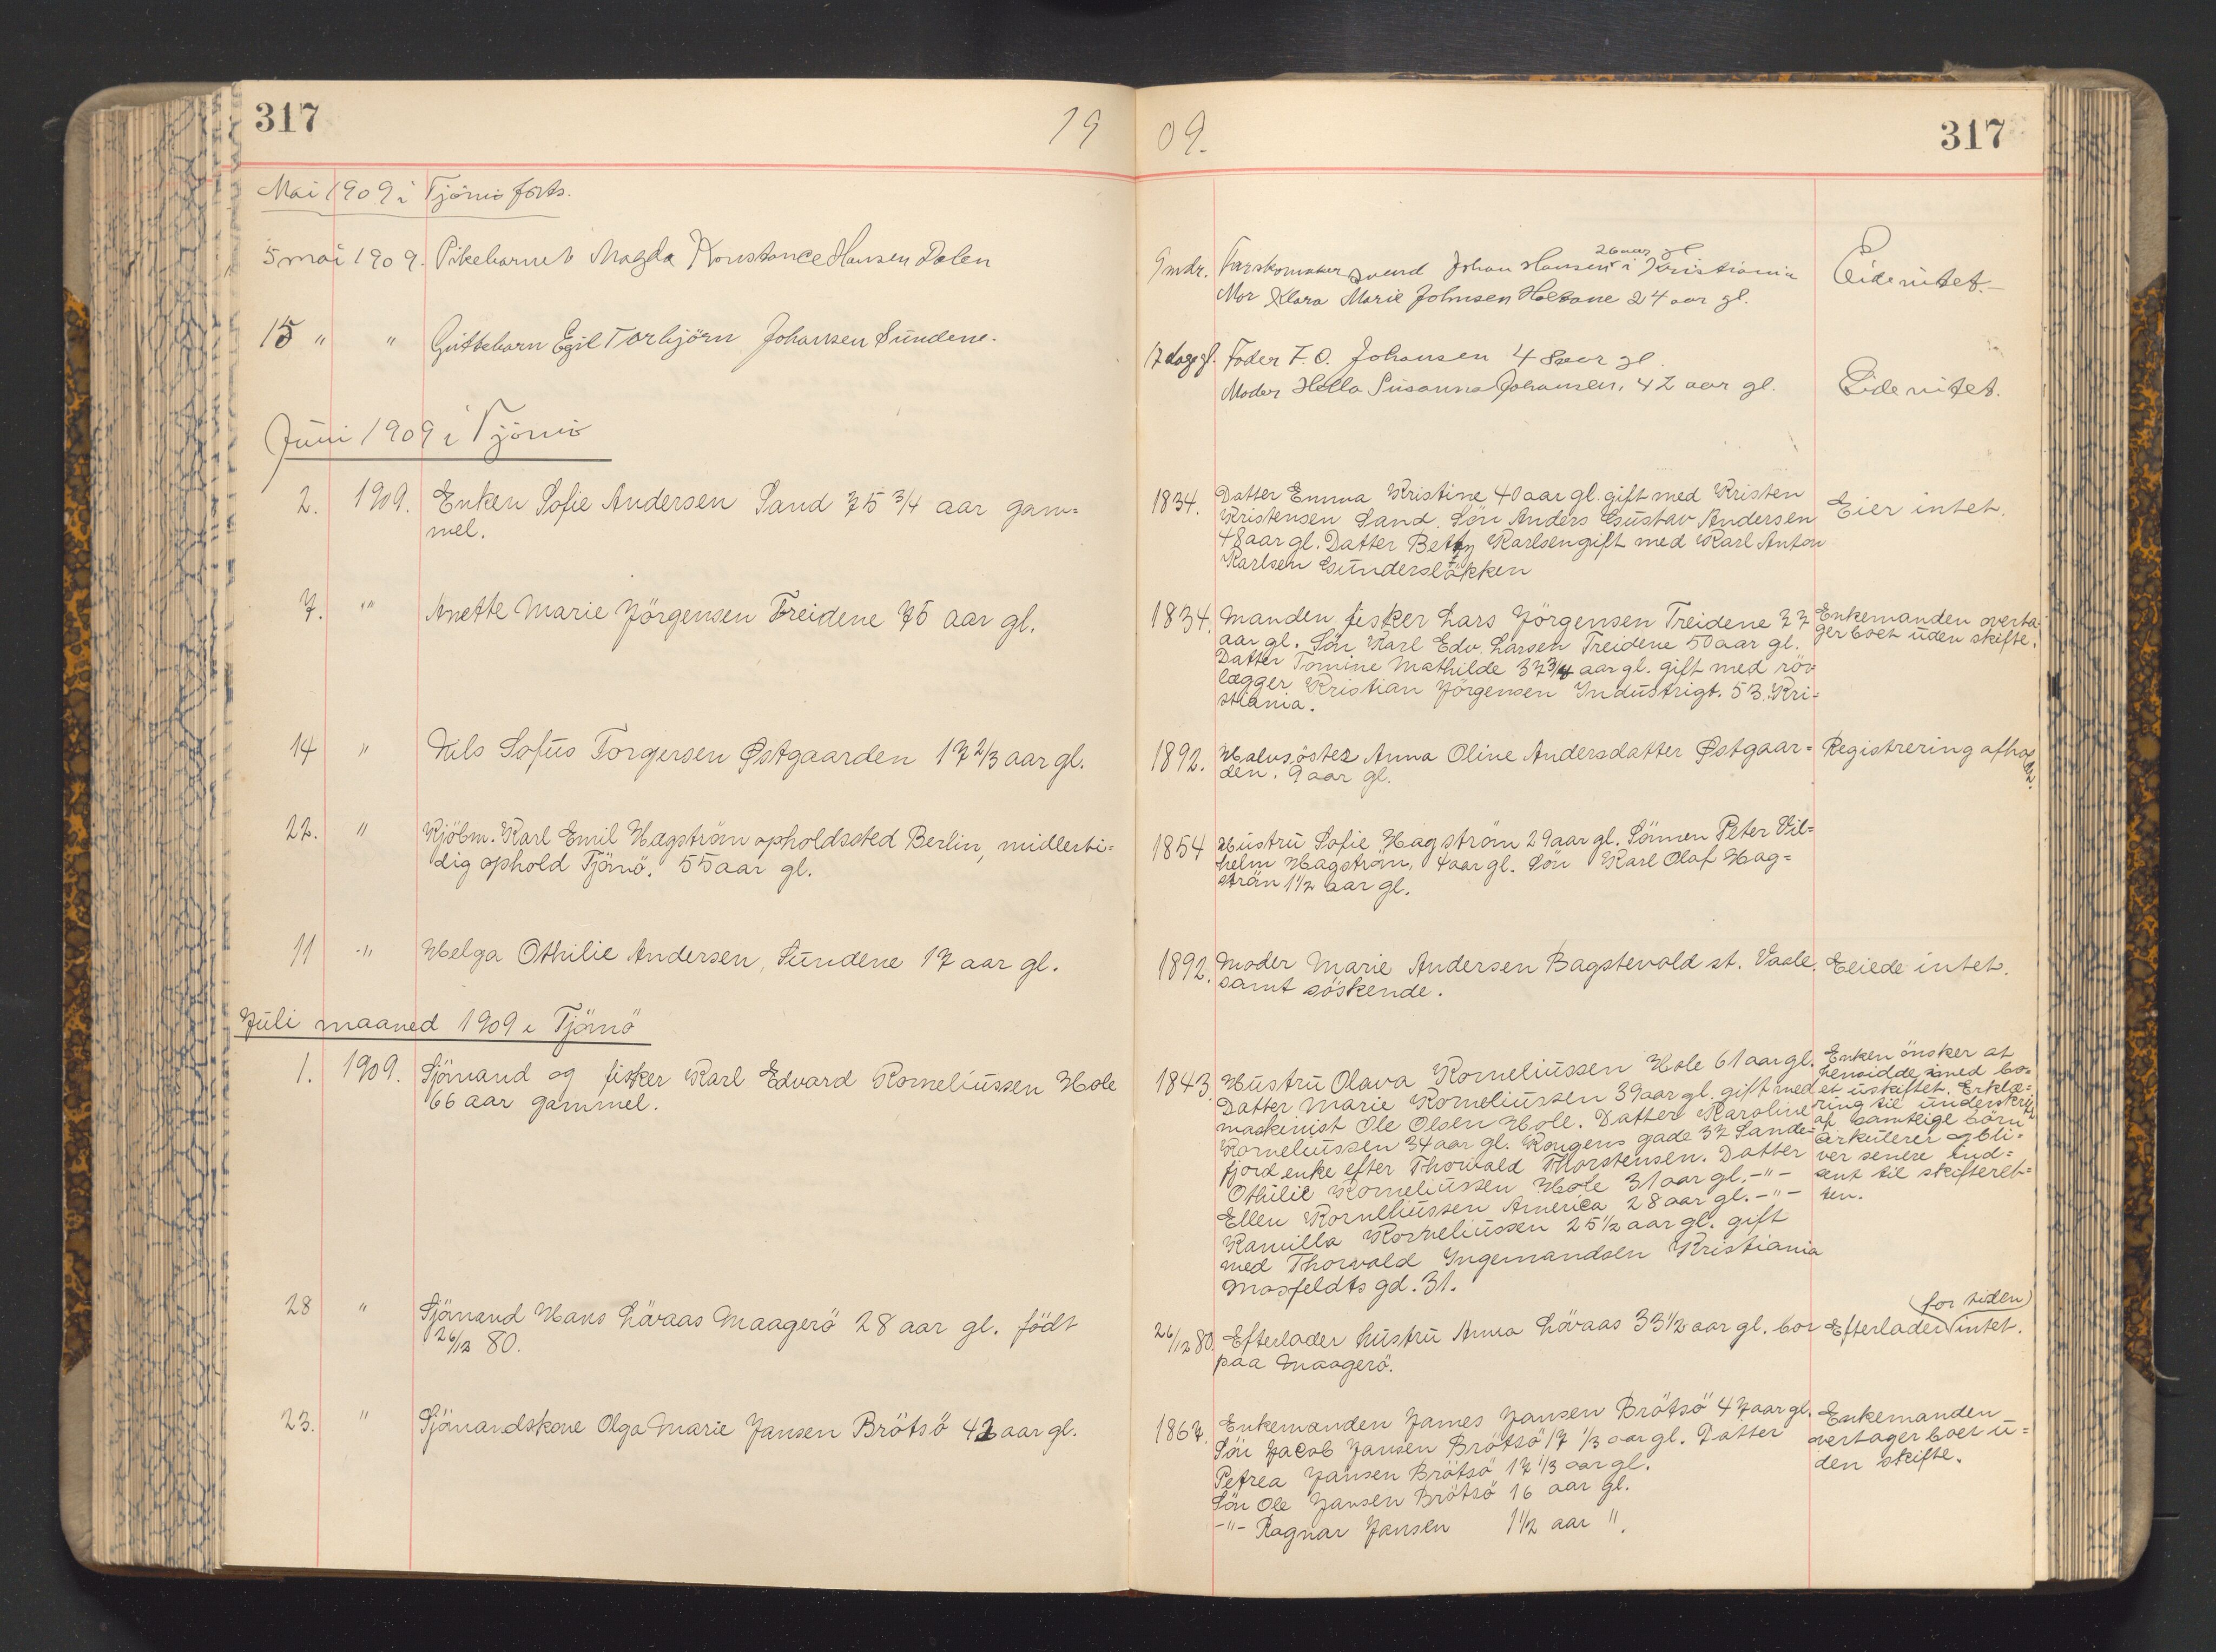 317
19
09.
317
Mai 1909 i Tjömö forts.
5 mai 1909. Pikebarnet Magda Konstance Hansen Dalen
9 mdr. Farskomaker svend Johan Hansen i Kristiania
26 aar gl
Mor Klara Marie Johnsen Holtane 24 aar gl.
Eide intet.
15 " " Guttebarn Egil Torbjörn Johansen Sundene.
17 dage gl. Fader F. O. Johansen 48 aar gl.
Moder Hella Susanna Johansen, 42 aar gl.
Eide intet.
Juni 1909 i Tjömö
2. 1909. Enken Sofie Andersen Sand 75 3/4 aar gam=
mel.
1834. Datter Emma Kristine 40 aar gl. gift med Kristen
Kristensen Sand. Sön Anders Gustav Andersen
48 aar gl. Datter Betty Karlsen gift med Karl Anton
Karlsen Gunderslökken
Eier intet.
7. " Anette Marie Jörgensen Treidene 75 aar gl.
1834. Manden fisker Lars Jörgensen Treidene 77
aar gl. Sön Karl Edv. Larsen Treidene 50 aar gl.
Datter Tomine Mathilde 37 3/4 aar gl. gift med rör
lægger Kristian Jörgensen Industrigt. 53. Kri=
stiania.
Enkemanden overta
ger boet uden skifte.
14 " Nils Sofus Torgersen Østgaarden 17 2/3 aar gl.
1892. Halvsöster Anna Oline Andersdatter Østgaar=
den. 9 aar gl.
Registrering afhol
22. " Kjöbm. Karl Emil Hagström opholdssted Berlin, midlerti=
dig ophold Tjömö. 55 aar gl.
1854 Hustru Sofie Hagström 29 aar gl. Sönnen Peter Vil=
helm Hagström, 4 aar gl. Sön Karl Olaf Hag=
strön 1 1/2 aar gl.
11 " Helga Othilie Andersen, Sundene 17 aar gl.
1892. Moder Marie Andersen Bagstevold st. Vaale.
samt söskende.
Eiede intet.
Juli maaned 1909 i Tjömö
1. 1909. Sjömand og fisker Karl Edvard Korneliussen Hole
66 aar gammel.
1843. Hustru Olava Korneliussen Hole 61 aar gl.
Datter Marie Korneliussen 39 aar gl. gift med
maskinist Ole Olsen Hole. Datter Karoline
Korneliussen 34 aar gl. Kongens gade 37 Sande=
fjord enke efter Thorvald Thorstensen. Datter
Othilie Korneliussen Hole 31 aar gl. -"-
Ellen Korneliussen America 28 aar gl. -"-
Kamilla Korneliussen 25 1/2 aar gl. gift
med Thorvald Ingemandsen Kristiania
Mosfeldts gd. 31.
Enken önsker at
hensidde med bo=
et uskiftet. Erklæ=
ring til underskrift
af samtlige börn
cirkulerer og bli=
ver senere ind=
sent til skifteret=
ten.
28 " Sjömand Hans Lövaas Maagerö 28 aar gl. födt
26/12 80.
26/12 80. Efterlader hustru Anna Lövaas 33 1/2 aar gl. bor
paa Maagerö.
(for tiden)
Efterlader intet.
23. " Sjömandskone Olga Marie Jansen Brötsö 42 aar gl.
1867. Enkemanden James Jansen Brötsö 47 aar gl.
Sön Jacob Jansen Brötsö 17 1/3 aar gl. Datter
Petrea Jansen Brötsö 17 1/3 aar gl.
Sön Ole Jansen Brötsö 16 aar gl.
-"- Ragnar Jansen 1 1/2 aar ".
Enkemanden
overtager boet u=
den skifte.